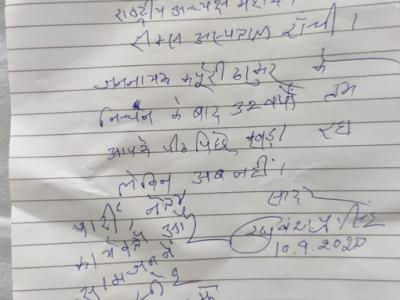 राष्ट्रीय अध्यक्ष महोदय
रिम्स अस्पताल राँची।
जननायक कर्पूरी ठाकुर के
निधन के बाद 32 वर्षों तक
आपके पीठ पीछे खड़ा रहा
लेकिन अब नहीं।
सादर
पार्टी, नेता
रघुवंश प्रसाद सिंह
10.9.2020
आमजन ने